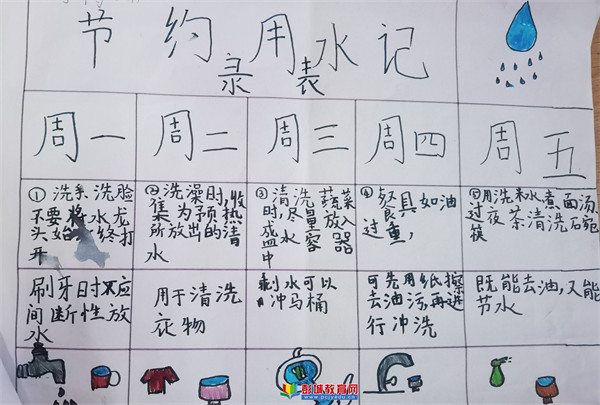 节约用水记
录表
周一
周二
周三
周四
周五
①洗手洗脸
不要将水龙
头始终打
开
②洗澡时,收
集为预热
所放出的清
水
③清洗蔬菜
时,尽量放入
盛水容器
中
④餐具如油
过重,
⑤用洗米水煮面汤,
过夜茶清洗碗
筷
刷牙时不应
间断性放
水
用于清洗
衣物
剩水可以
冲马桶
可先用纸擦
去油污,再进
行冲洗
既能去油,又能
节水
彭城教育网